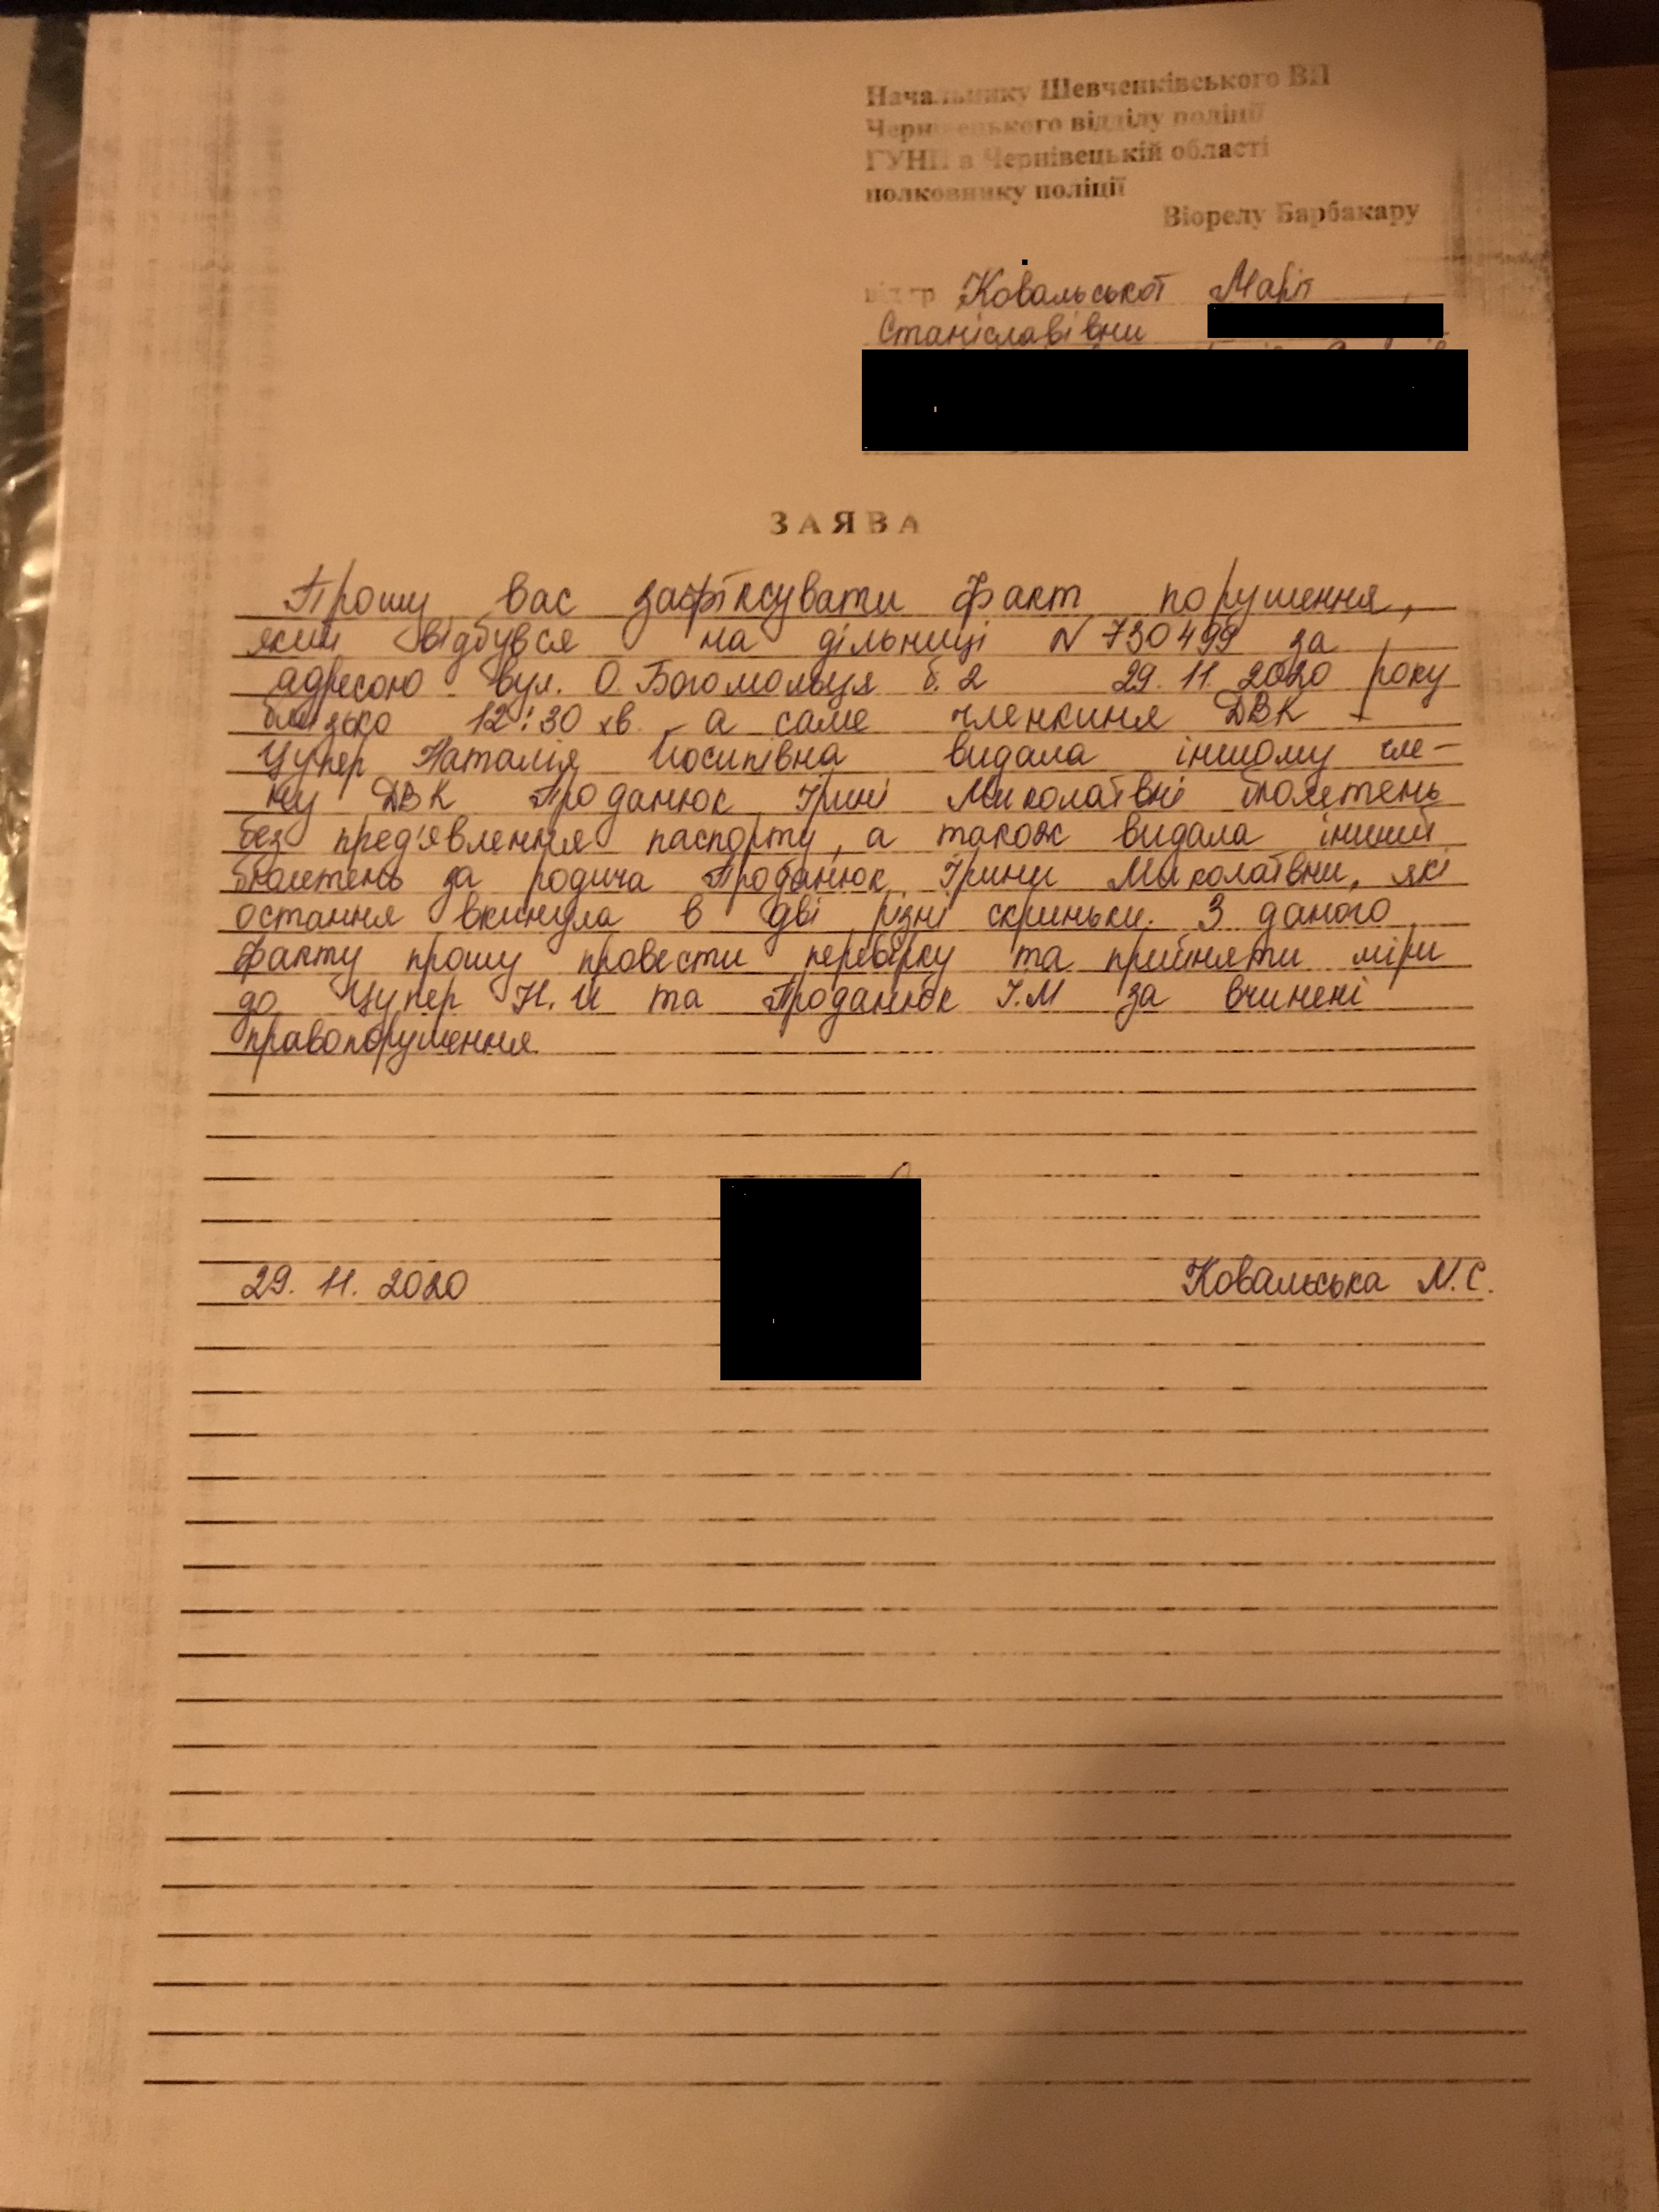 Начальнику Шевченківського ВП
Чернівецького відділу поліції
ГУНП в Чернівецькій області
полковнику поліції
Віорелу Барбакару
від гр Ковальської Марії
Станіславівни
ЗАЯВА
Прошу вас зафіксувати факт порушення,
який відбувся на дільниці N 730499 за
адресою вул. О. Богомольця б. 2 29. 11. 2020 року
близько 12:30 хв. - а саме членкиня ДВК -
Цупер Наталія Йосипівна видала іншому чле-
ну ДВК Проданюк Ірині Миколаївні бюлетень
без пред'явлення паспорту, а також видала інший
бюлетень за родича Проданюк Ірини Миколаївни, які
остання вкинула в дві різні скриньки. З даного
факту прошу провести перевірку та прийняти міри
до Цупер Н.Й та Проданюк І.М за вчинені
правопорушення.
29. 11. 2020 Ковальська М.С.